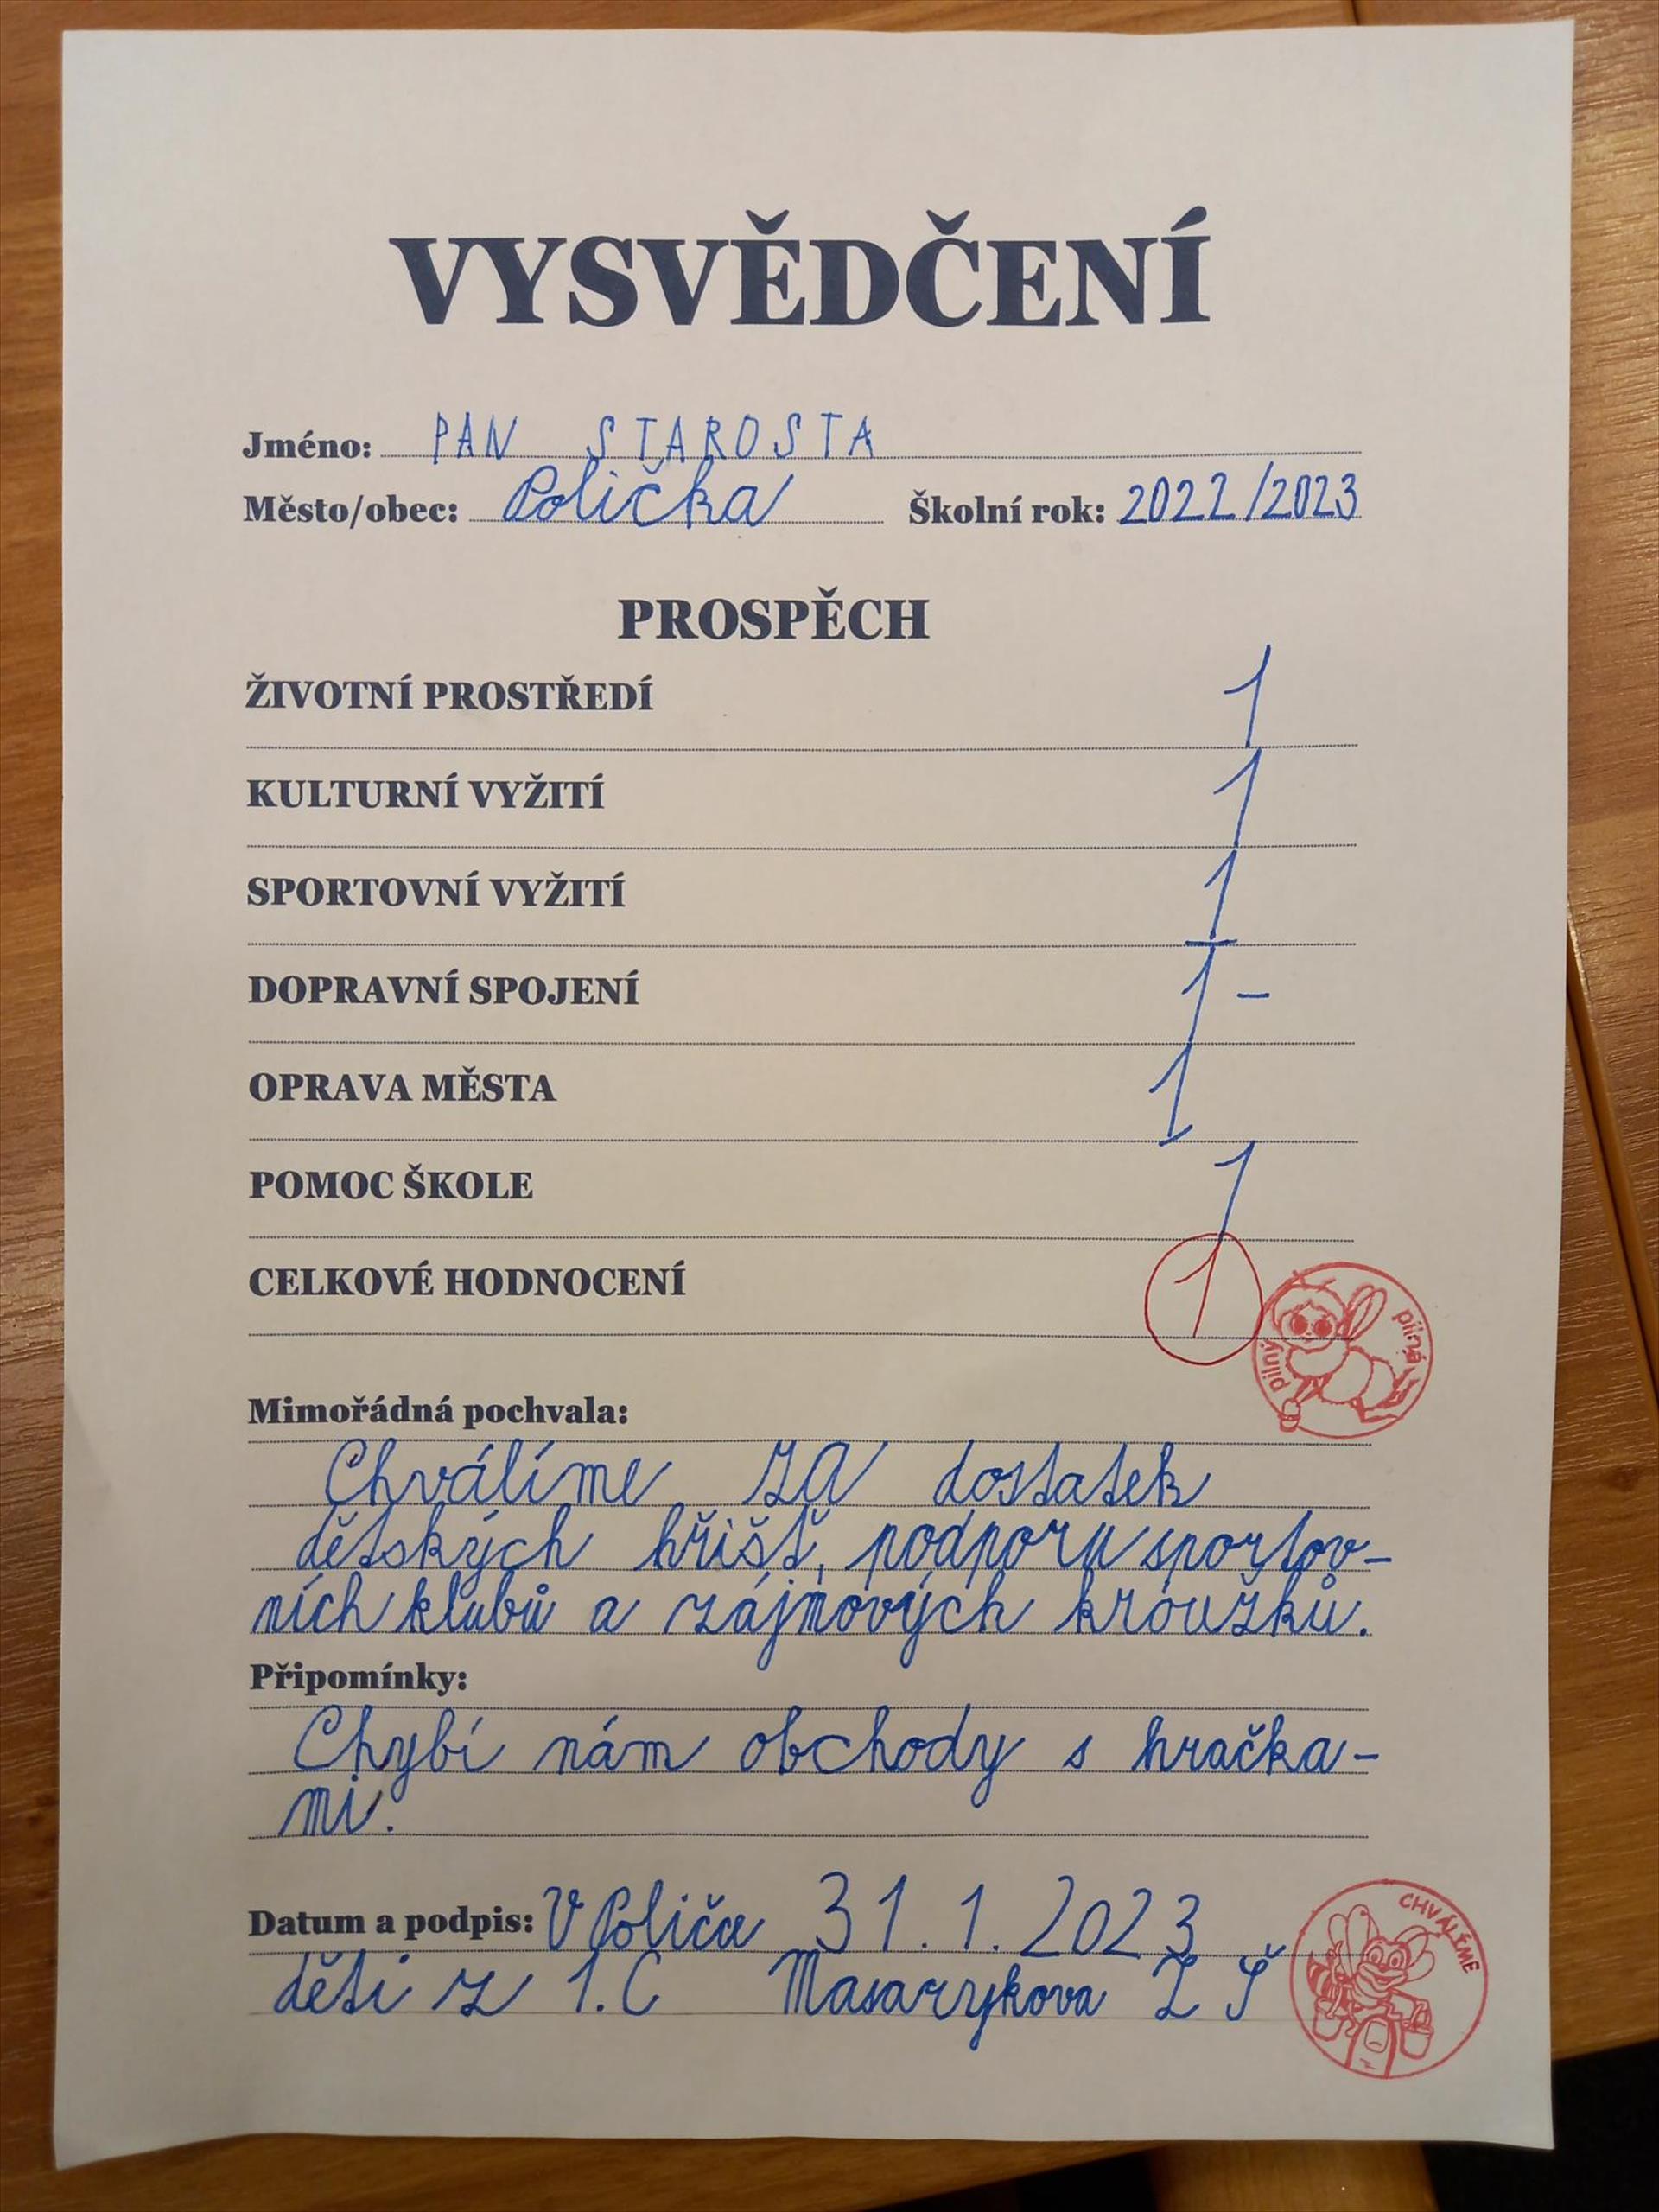 VYSVĚDČENÍ
Jméno: PAN STAROSTA
Město/obec: Polička Školní rok: 2022/2023
PROSPĚCH
ŽIVOTNÍ PROSTŘEDÍ 1
KULTURNÍ VYŽITÍ 1
SPORTOVNÍ VYŽITÍ 1
DOPRAVNÍ SPOJENÍ 1-
OPRAVA MĚSTA 1
POMOC ŠKOLE 1
CELKOVÉ HODNOCENÍ 1
pilný pilná
Mimořádná pochvala:
Chválíme za dostatek
dětských hřišť, podporu sportov-
ních klubů a zájmových kroužků.
Připomínky:
Chybí nám obchody s hračka-
mi.
Datum a podpis: V Poličce 31.1.2023
děti z 1.C Masarykova ZŠ
CHVÁLÍME